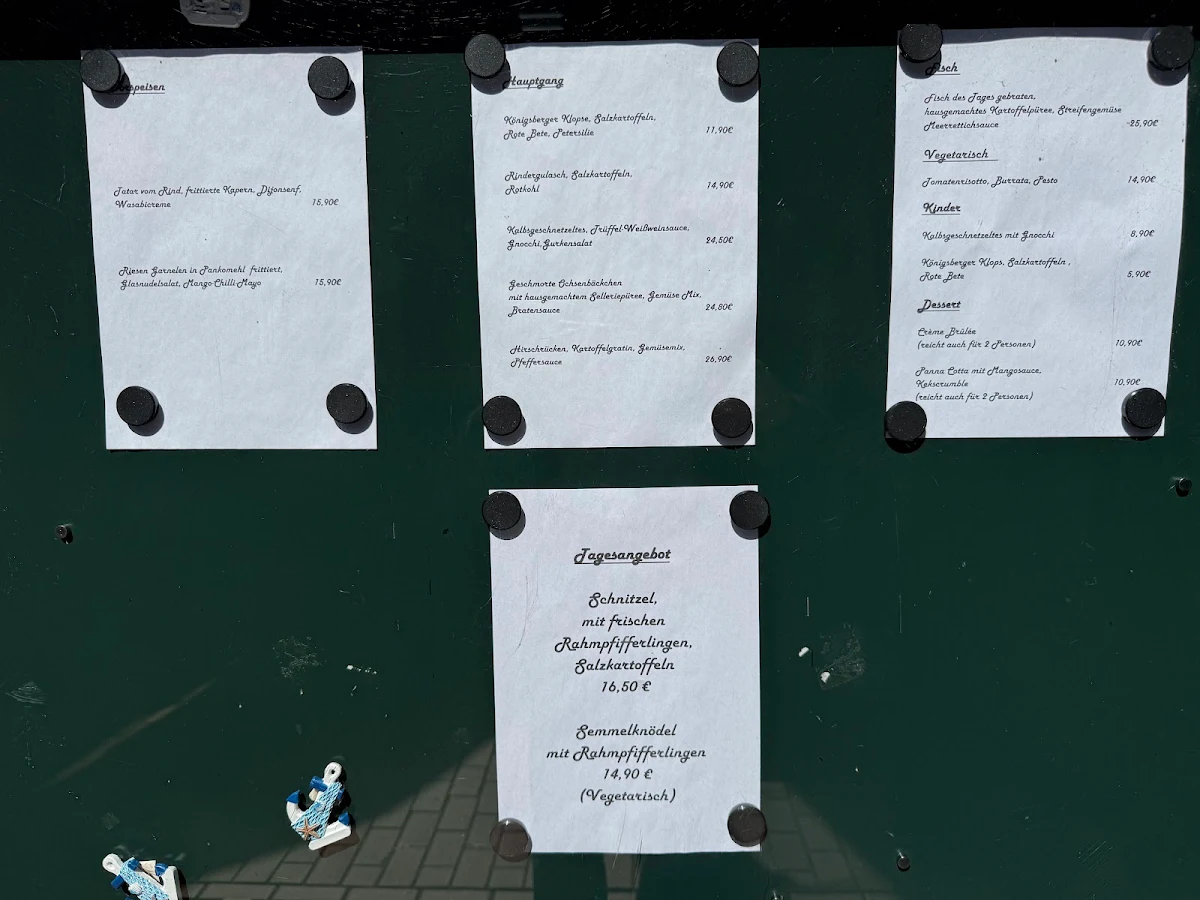 Vorspeisen
Tatar vom Rind, frittierte Kapern, Dijonsenf,
Wasabicreme 15,90€
Riesen Garnelen in Pankomehl frittiert,
Glasnudelsalat, Mango-Chilli-Mayo 15,90€
Hauptgang
Königsberger Klopse, Salzkartoffeln,
Rote Bete, Petersilie 11,90€
Rindergulasch, Salzkartoffeln,
Rotkohl 14,90€
Kalbsgeschnetzeltes, Trüffel-Weißweinsauce,
Gnocchi, Gurkensalat 24,50€
Geschmorte Ochsenbäckchen
mit hausgemachtem Selleriepüree, Gemüse Mix,
Bratensauce 24,80€
Hirschrücken, Kartoffelgratin, Gemüsemix,
Pfeffersauce 26,90€
Fisch
Fisch des Tages gebraten,
hausgemachtes Kartoffelpüree, Streifengemüse
Meerrettichsauce 25,90€
Vegetarisch
Tomatenrisotto, Burrata, Pesto 14,90€
Kinder
Kalbsgeschnetzeltes mit Gnocchi 8,90€
Königsberger Klops, Salzkartoffeln ,
Rote Bete 5,90€
Dessert
Crème Brûlèe
(reicht auch für 2 Personen) 10,90€
Panna Cotta mit Mangosauce,
Kekscrumble 10,90€
(reicht auch für 2 Personen)
Tagesangebot
Schnitzel,
mit frischen
Rahmpfifferlingen,
Salzkartoffeln
16,50 €
Semmelknödel
mit Rahmpfifferlingen
14,90 €
(Vegetarisch)